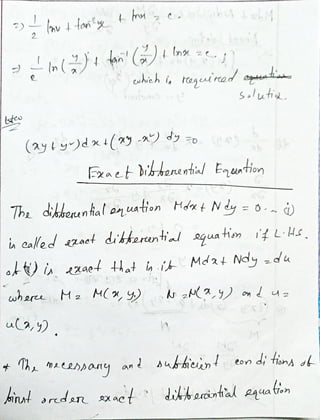 => 1/2 lnv + tan⁻¹v + lnx = c.
=> 1/2 ln(y/x) + tan⁻¹(y/x) + lnx = c ;
which is required equation
solution.
(xy + y²) dx + (xy - x²) dy = 0
Exact Differential Equation
The differential equation Mdx + Ndy = 0 .. (i)
is called exact differential equation if L.H.S.
of (i) is exact that is if Mdx + Ndy = du
where M = M(x, y) N = N(x, y) and u =
u(x, y).
* The necessary and sufficient conditions of
first order exact differential equation